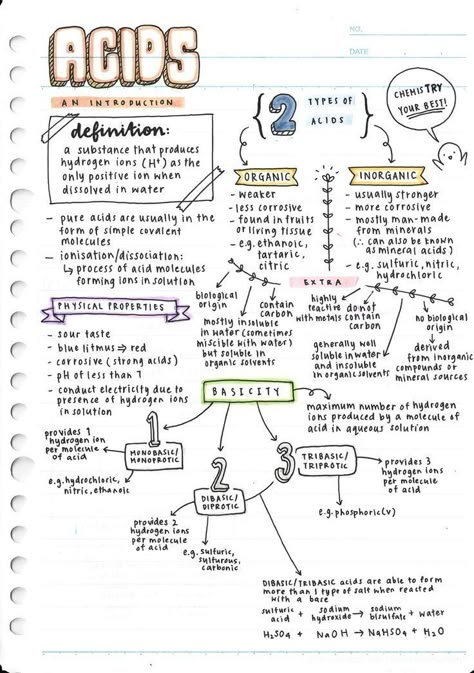 ACIDS
NO.
DATE
AN INTRODUCTION
definition:
a substance that produces
hydrogen ions (H⁺) as the
only positive ion when
dissolved in water
2 TYPES OF
ACIDS
CHEMISTRY
YOUR BEST!
- pure acids are usually in the
form of simple covalent
molecules
- ionisation/dissociation:
↳ process of acid molecules
forming ions in solution
ORGANIC
- weaker
- less corrosive
- found in fruits
or living tissue
- e.g. ethanoic,
tartaric,
citric
INORGANIC
- usually stronger
- more corrosive
- mostly man-made
from minerals
(∴ can also be known
as mineral acids)
- e.g. sulfuric, nitric,
hydrochloric
EXTRA
biological
origin
mostly insoluble
in water (sometimes
miscible with water)
but soluble in
organic solvents
contain
carbon
highly
reactive
with metals
do not
contain
carbon
generally well
soluble in water
and insoluble
in organic solvents
no biological
origin
derived
from inorganic
compounds or
mineral sources
PHYSICAL PROPERTIES
- sour taste
- blue litmus ⇒ red
- corrosive (strong acids)
- pH of less than 7
- conduct electricity due to
presence of hydrogen ions
in solution
BASICITY
maximum number of hydrogen
ions produced by a molecule of
acid in aqueous solution
1
MONOBASIC/
MONOPROTIC
provides 1
hydrogen ion
per molecule
of acid
e.g. hydrochloric,
nitric, ethanoic
2
DIBASIC/
DIPROTIC
provides 2
hydrogen ions
per molecule
of acid
e.g. sulfuric,
sulfurous,
carbonic
3
TRIBASIC/
TRIPROTIC
provides 3
hydrogen ions
per molecule
of acid
e.g. phosphoric(v)
DIBASIC/TRIBASIC acids are able to form
more than 1 type of salt when reacted
with a base
sulfuric acid + sodium hydroxide → sodium bisulfate + water
H₂SO₄ + NaOH → NaHSO₄ + H₂O